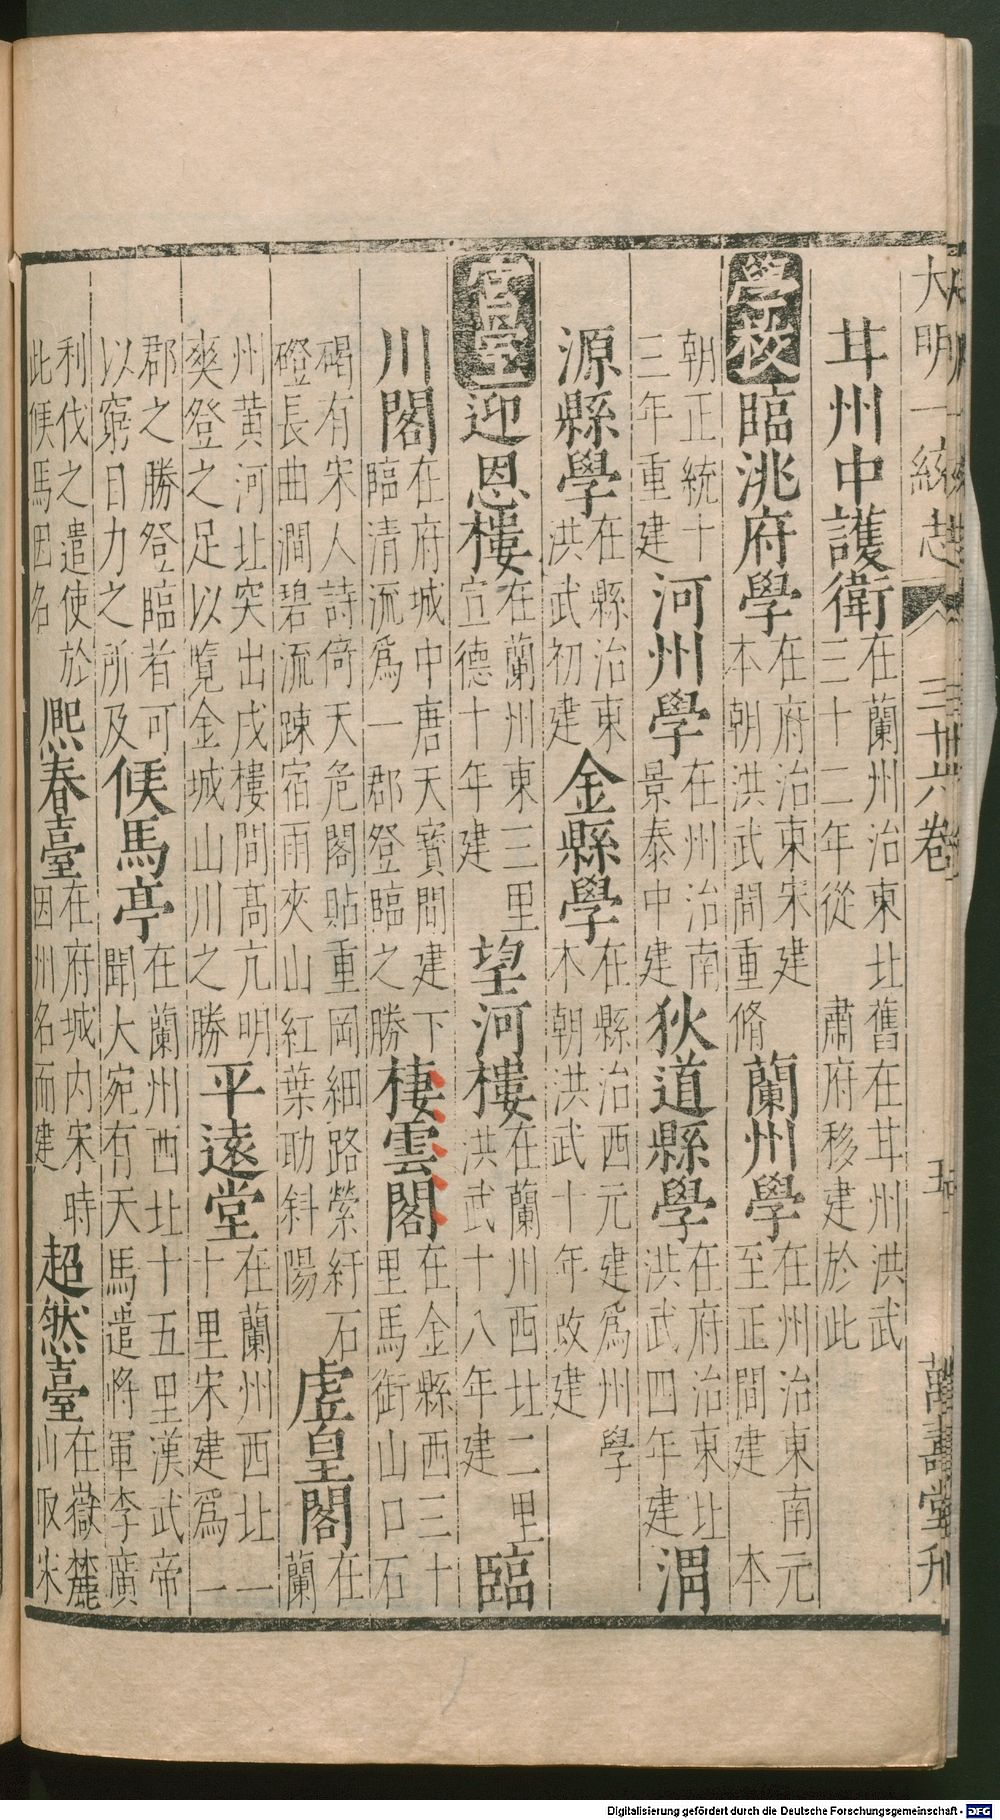 大明一統志 三十六卷 五 萬壽堂刊
甘州中護衛在蘭州治東北舊在甘州洪武三十二年從 肅府移建於此
學校臨洮府學在府治東宋建本朝洪武間重脩蘭州學在州治東南元至正間建 本
朝正統十三年重建河州學在州治南景泰中建狄道縣學在府治東北洪武四年建渭
源縣學在縣治東洪武初建金縣學在縣治西元建爲州學本朝洪武十年改建
宮室迎恩樓在蘭州東三里宣德十年建望河樓在蘭州西北二里洪武十八年建臨
川閣在府城中唐天寶間建下臨清流爲一郡登臨之勝棲雲閣在金縣西三十里馬銜山口石
碣有宋人詩倚天危閣貼重岡細路縈紆石磴長曲澗碧流踈宿雨夾山紅葉助斜陽虛皇閣在蘭
州黃河北突出戍樓間高亢明爽登之足以覽金城山川之勝平遠堂在蘭州西北一十里宋建爲一
郡之勝登臨者可以窮目力之所及候馬亭在蘭州西北十五里漢武帝聞大宛有天馬遣將軍李廣
利伐之遣使於此候馬因名熈春臺在府城內宋時因州名而建超然臺在嶽麓山阪宋
Digitalisierung gefördert durch die Deutsche Forschungsgemeinschaft - DFG